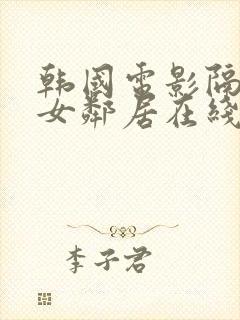 韩国电影隔
女邻居在线
李子君